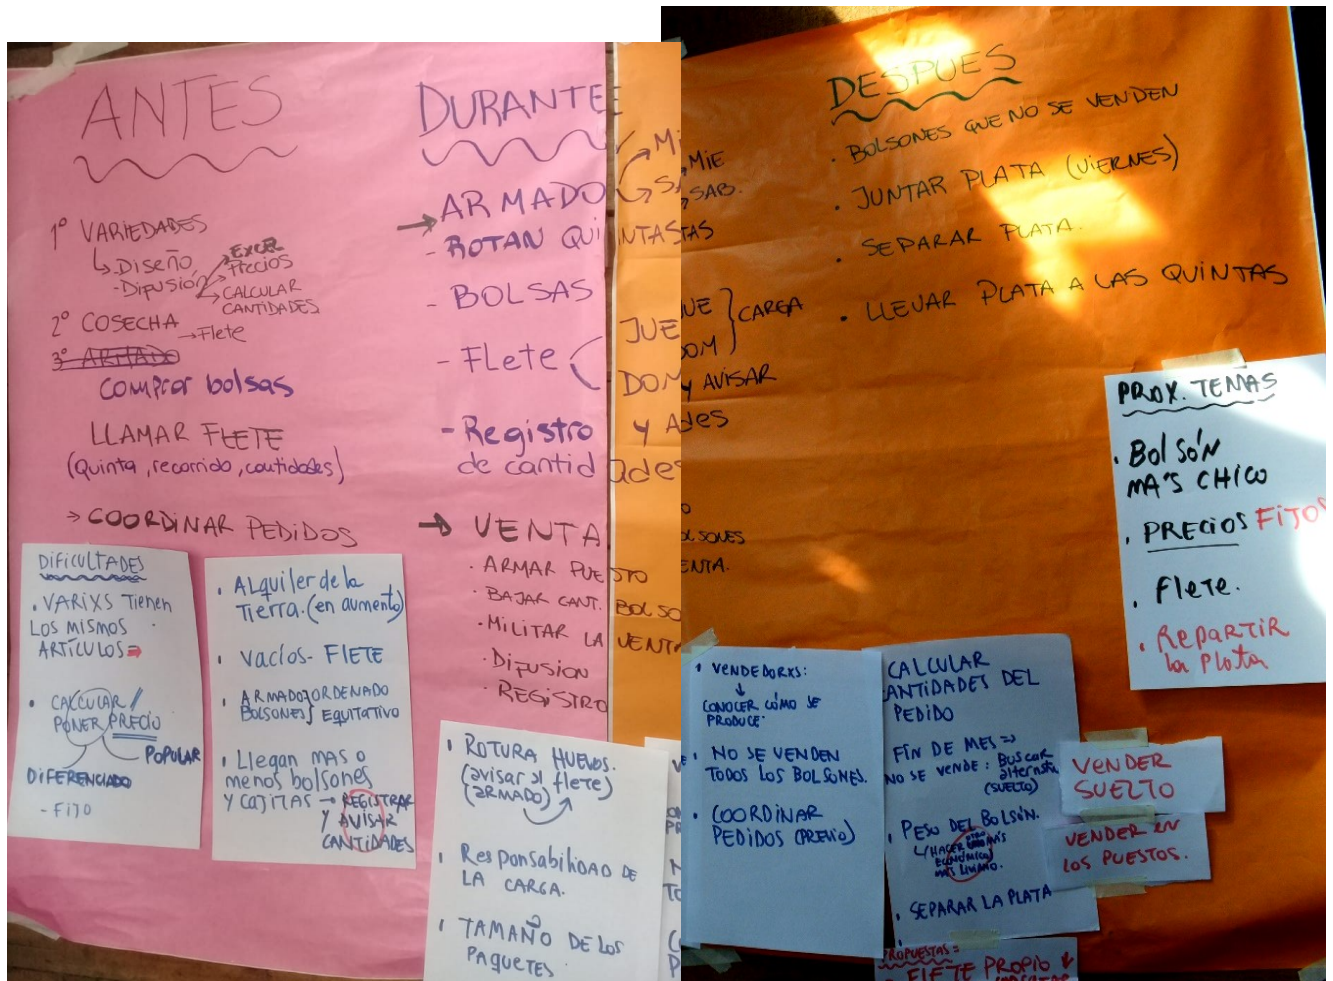 ANTES
1° VARIEDADES
Diseño
- Difusión
EXCEL
Precios
CALCULAR
CANTIDADES
2° COSECHA
→ Flete
3° ARMADO
comprar bolsas
LLAMAR FLETE
(Quinta, recorrido, cantidades)
→ COORDINAR PEDIDOS
DIFICULTADES
• VARIXS TIENEN
LOS MISMOS
ARTÍCULOS
• CALCULAR /
PONER PRECIO
POPULAR
DIFERENCIADO
- FIJO
• ALQUILER de la
TIERRA. (en aumento)
• Vacíos - FLETE
• ARMADO } ORDENADO
BOLSONES } EQUITATIVO
• Llegan MAS o
menos bolsones
Y CAJITAS → REGISTRAR
Y AVISAR
CANTIDADES
DURANTE
→ ARMADO
Mi
SA
- ROTAN QUINTAS
- BOLSAS
- Flete
JUE
DOM
- Registro y A
de cantidades
→ VENTA
• ARMAR PUESTO
• BAJAR CANT. BOLSO
• MILITAR LA VENTA
• DIFUSION
• REGISTRO
• ROTURA HUEVOS.
(avisar al flete)
(ARMADO)
• Responsabilidad DE
LA CARGA.
• TAMAÑO DE LOS
PAQUETES
MIE
SAB.
TAS
UE
OM
} CARGA
y AVISAR
ades
OLSONES
ENTA.
DESPUES
• BOLSONES QUE NO SE VENDEN
• JUNTAR PLATA (VIERNES)
• SEPARAR PLATA.
• LLEVAR PLATA A LAS QUINTAS
PROX. TEMAS
• Bolsón
MA'S CHICO
• PRECIOS FIJOS
• Flete.
• Repartir
la plata
• VENDEDORXS:
CONOCER CÓMO SE
PRODUCE.
• NO SE VENDEN
TODOS LOS BOLSONES.
• COORDINAR
PEDIDOS (PREVIO)
CALCULAR
ANTIDADES DEL
PEDIDO
FIN DE MES ⇒
NO SE VENDE: Buscar
alternativa
(SUELTO)
• PESO DEL BOLSÓN.
HACER OTRO MÁS
ECONÓMICO
MÁS LIVIANO.
• SEPARAR LA PLATA
VENDER
SUELTO
VENDER EN
LOS PUESTOS.
PROPUESTAS =
FLETE PROPIO